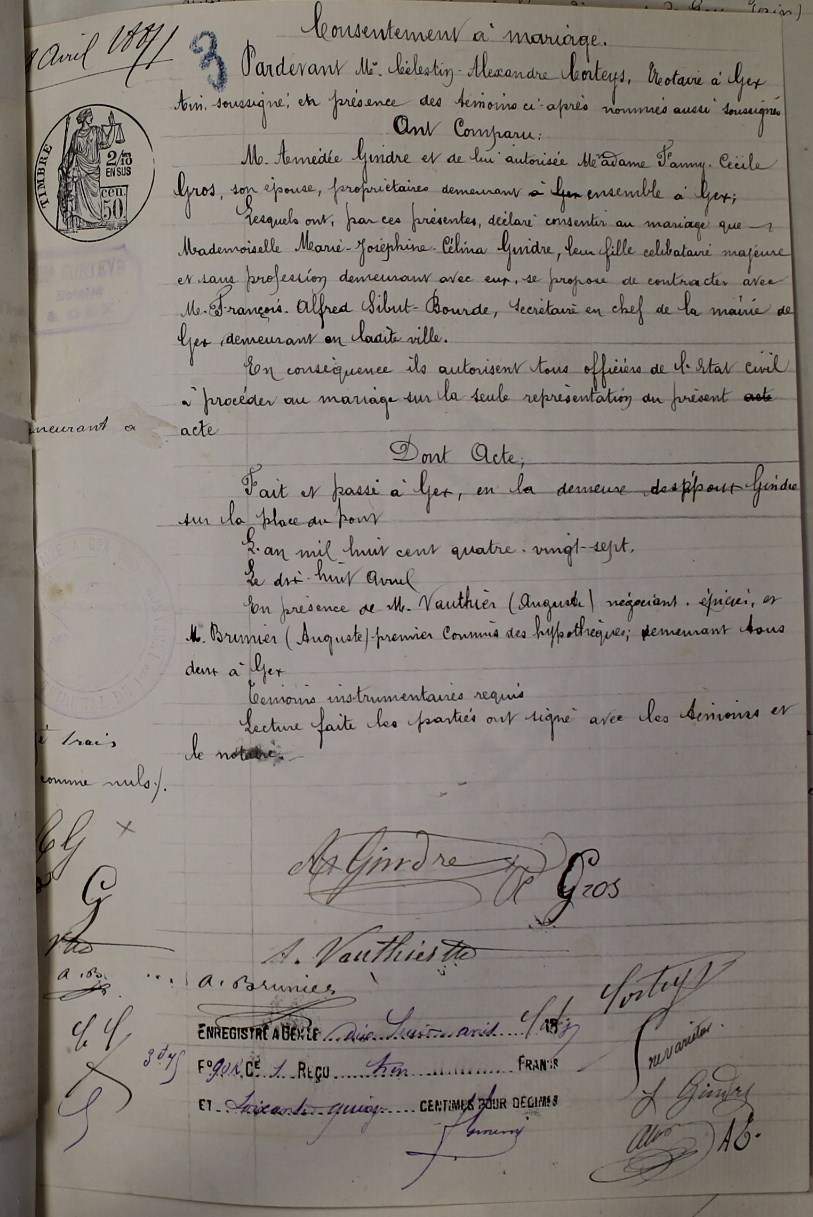 Consentement à mariage.
Avril 1887
3
Pardevant Me. Célestin-Alexandre Corteys, Notaire à Gex
Ain, soussigné, en présence des témoins ci-après nommés aussi soussignés
Ont Comparu:
M. Amédée Gindre et de lui autorisée Madame Fanny-Cécile
Gros, son épouse, propriétaires demeurant à Gex ensemble à Gex;
Lesquels ont, par ces présentes, déclaré consentir au mariage que
Mademoiselle Marie-Joséphine-Célina Gindre, leur fille célibataire majeure
et sans profession demeurant avec eux, se propose de contracter avec
M. François-Alfred Sibut-Bourde, secrétaire en chef de la mairie de
Gex, demeurant en ladite ville.
En conséquence ils autorisent tous officiers de l'Etat civil
à procéder au mariage sur la seule représentation du présent acte
acte
Dont Acte;
Fait et passé à Gex, en la demeure des époux Gindre
sur la place du pont
L'an mil huit cent quatre-vingt-sept,
Le dix-huit Avril
En présence de M. Vauthier (Auguste) négociant-épicier, et
M. Brunier (Auguste) premier Commis des hypothèques; demeurant tous
deux à Gex
Témoins instrumentaires requis
Lecture faite les parties ont signé avec les témoins et
le notaire.
TIMBRE
2/10
EN SUS
50 cen
meurant à
trais
comme nuls).
G
A. B.
Gindre
Gros
A. Vauthier
A. Brunier
Corteys
ENREGISTRÉ A GEX LE dix huit avril 1887
Fo 90 Ce 1 REÇU trois FRANCS
ET soixante quinze CENTIMES POUR DÉCIMES
3 d 75
Ne varietur
Gindre